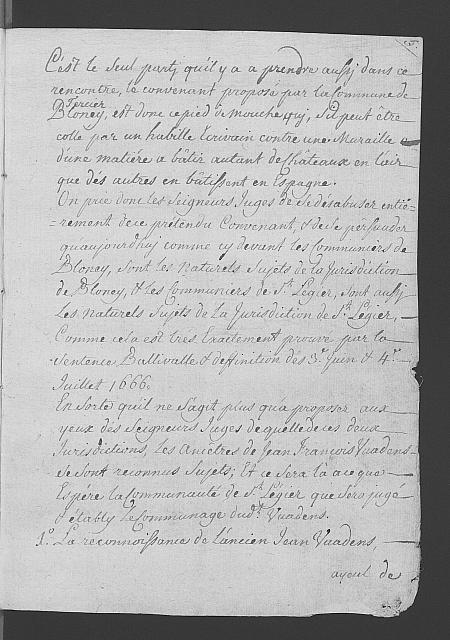 C'est le seul partj qu'il y a a prendre aussj dans ce
rencontre, le convenant proposé par la Commune de
Tercier
Bloney, est donc ce pied de Mouche, qui, s'il peut être
collé par un habille Ecrivain contre une Muraille
d'une matiére a bâtir autant de Châteaux en l'air
que dés autres en bâtissent en Espagne.
On prie donc les Seigneurs Juges de se désabuser entié=
=rement de ce prétendu Convenant, & de se persuader
qu'aujourdhuj comme cy devant les Communiers de
Bloney, sont les Naturels Sujets de la Jurisdiction
de Bloney, & les Communiers de St. Légier, sont aussj
les Naturels Sujets de la Jurisdiction de St. Légier,
Comme cela est tres Exactement prouvé par la
Sentence Ballivalle & deffinition dés 3e. Juin & 4e.
Juillet 1666.
En Sorte qu'il ne s'agit plus qu'a proposer aux
yeux des Seigneurs Juges de quelle de ces deux
Jurisdictions, les Ancêtres de Jean François Vuadens
se sont reconnus Sujets; Et ce sera là a ce que
Espére la Communauté de St. Légier que sera jugé
& établj le Communage dudt. Vuadens.
1°. La reconnoissance de l'ancien Jean Vuadens,
ayeul de